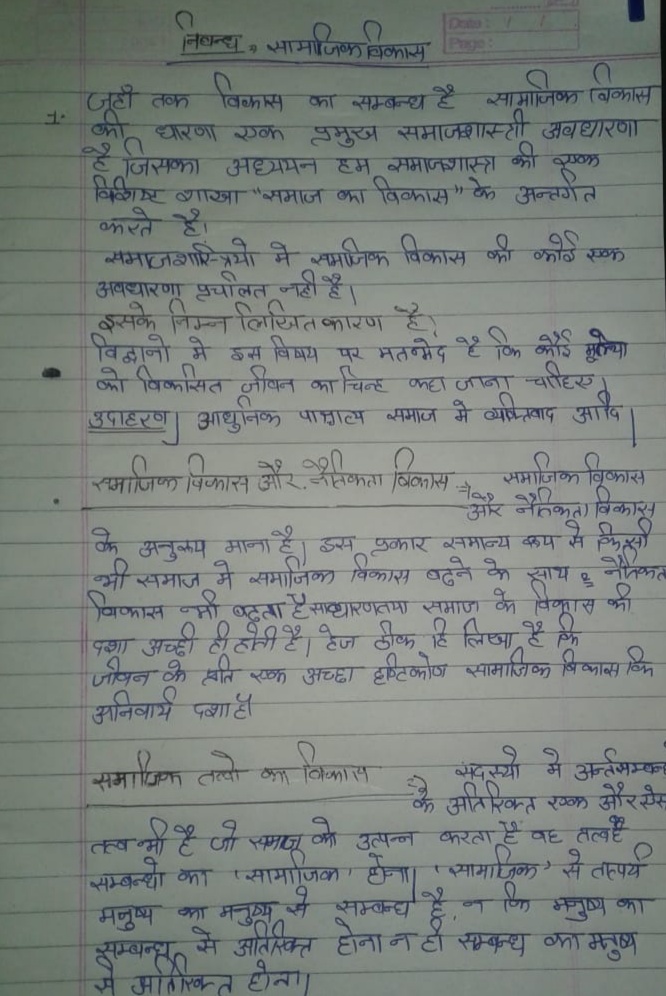 Date: / /
Page:
निबन्ध = सामाजिक विकास
1. जहाँ तक विकास का सम्बन्ध है सामाजिक विकास
की धारणा एक प्रमुख समाजशास्त्री अवधारणा
है जिसका अध्ययन हम समाजशास्त्र की एक
विशिष्ट शाखा "समाज का विकास" के अन्तर्गत
करते है।
समाजशास्त्रियो मे समाजिक विकास की कोई एक
अवधारणा प्रचलित नही है।
इसके निम्न लिखित कारण है।
विद्वानो मे इस विषय पर मतभेद है कि कोई मूल्यो
को विकसित जीवन का चिन्ह कहा जाना चाहिए।
उदाहरण| आधुनिक पाश्चात्य समाज मे व्यक्तिवाद आदि|
समाजिक विकास और नैतिकता विकास ⇒ समाजिक विकास
और नैतिकता विकास
के अनुरूप माना है। इस प्रकार समान्य रूप से किसी
भी समाज मे समाजिक विकास बढने के साथ नैतिकत
विकास भी बढता है साधारणतया समाज के विकास की
दशा अच्छी ही होती है। ठीक हि लिखा है कि
जीवन के प्रति एक अच्छा दृष्टिकोण सामाजिक विकास कि
अनिवार्य दशा है।
समाजिक तत्वो का विकास ⇒ सदस्यो मे अर्न्तसम्बन
के अतिरिक्त एक और ऐस
तत्व भी है जो समाज को उत्पन्न करता है वह तत्व है
सम्बन्धो का 'सामाजिक' होना| 'सामाजिक' से तत्पर्य
मनुष्य का मनुष्य से सम्बन्ध है, न कि मनुष्य का
सम्बन्ध से अतिरिक्त होना न ही सम्बन्ध का मनुष्य
से अतिरिक्त होना।